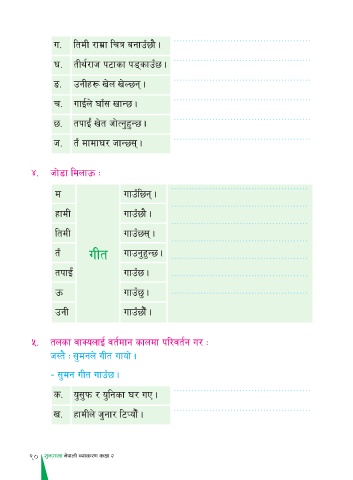 ग. तिमी राम्रा चित्र बनाउँछौ ।
घ. तीर्थराज पटाका पड्काउँछ ।
ङ. उनीहरू खेल खेल्छन् ।
च. गाईले घाँस खान्छ ।
छ. तपाईँ खेत जोत्नुहुन्छ ।
ज. तँ मामाघर जान्छस् ।
४. जोडा मिलाऊ :
म गाउँछिन् ।
हामी गाउँछौ ।
तिमी गाउँछस् ।
तँ गीत गाउनुहुन्छ ।
तपाईँ गाउँछ ।
ऊ गाउँछु ।
उनी गाउँछौँ ।
५. तलका वाक्यलाई वर्तमान कालमा परिवर्तन गर :
जस्तै : सुमनले गीत गायो ।
- सुमन गीत गाउँछ ।
क. युसुफ र युनिका घर गए ।
ख. हामीले जुनार टिप्यौँ ।
नेपाली व्याकरण कक्षा २